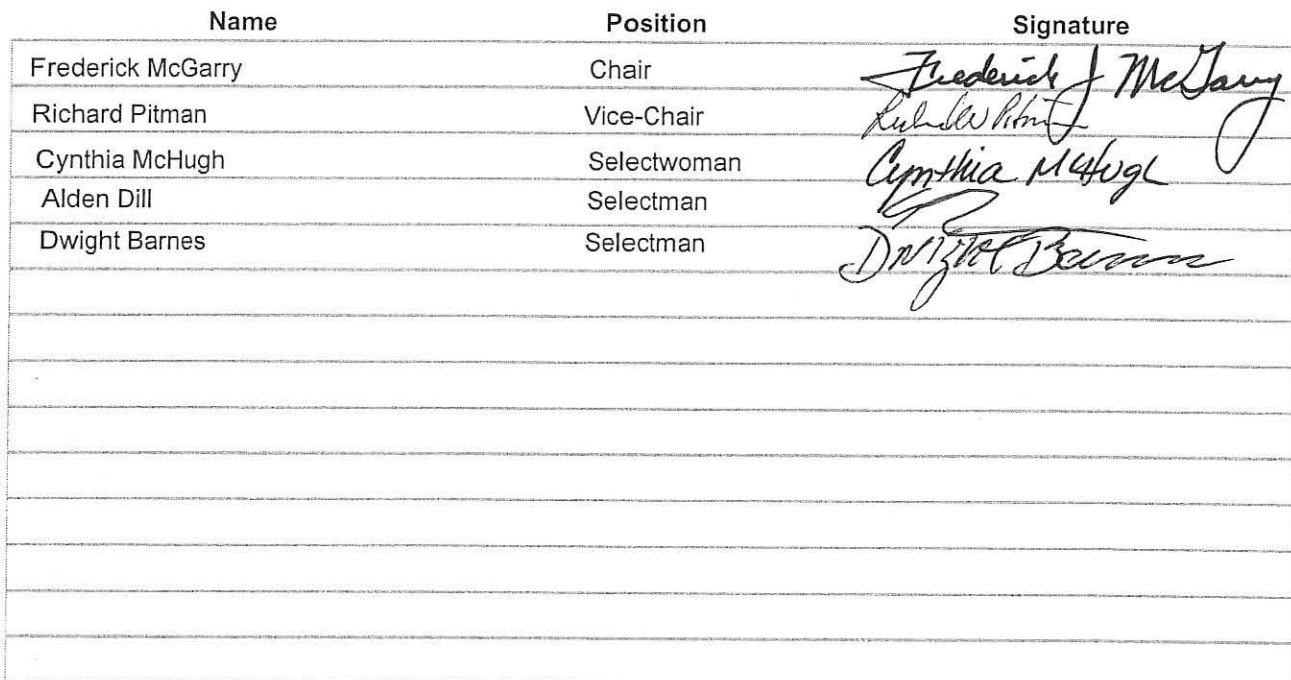 Name Position Signature
Frederick McGarry Chair Frederick J McGarry
Richard Pitman Vice-Chair Richard W Pitman
Cynthia McHugh Selectwoman Cynthia McHugh
Alden Dill Selectman
Dwight Barnes Selectman Dwight Barnes